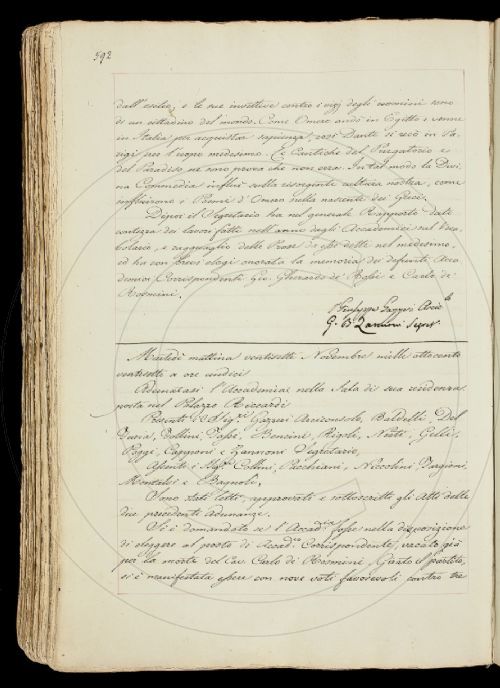 592
dall'esilio, e le sue invettive contro i vizj degli uomini sono
di un cittadino del mondo. Come Omero andò in Egitto e venne
in Italia per acquistar sapienza, così Dante si recò in Pa-
rigi per l'uopo medesimo. Le Cantiche del Purgatorio e
del Paradiso ne sono prova che non erra. In tal modo la Divi-
na Commedia influì sulla risorgente cultura nostra, come
influirono i Poemi d'Omero nella nascente dei Greci.
Dopoi il Segretario ha nel generale Rapporto dato
contezza dei lavori fatti nell'anno dagli Accademici sul Voca-
bolario, e ragguaglio delle Prose da essi dette nel medesimo,
ed ha con brevi elogi onorata la memoria dei defunti Acca-
demici Corrispondenti Gio. Gherardo de Rossi e Carlo de
Rosmini.
Giuseppe Gazzeri Arcic.lo
G. B. Zannoni Segret.
Martedì mattina ventisette Novembre mille ottocento
ventisette a ore undici
Adunatasi l'Accademia nella Sala di sua residenza
posta nel Palazzo Riccardi
Presenti i Sig.ri Gazzeri Arciconsolo, Baldelli, Del
Furia, Follini, Fossi, Bencini, Rigoli, Nesti, Gelli,
Poggi, Capponi e Zannoni Segretario,
Assenti i Sig.ri Collini, Pucciani, Niccolini, Targioni,
Montalvi e Bagnoli,
Sono stati letti, approvati e sottoscritti gli Atti delle
due precedenti Adunanze.
Si è domandato se l'Accad.ia fosse nella disposizione
di eleggere al posto di Accad.co Corrispondente, vacato già
per la morte del Cav. Carlo de Rosmini, Girato il partito,
si è manifestata essere con nove voti favorevoli contro tre